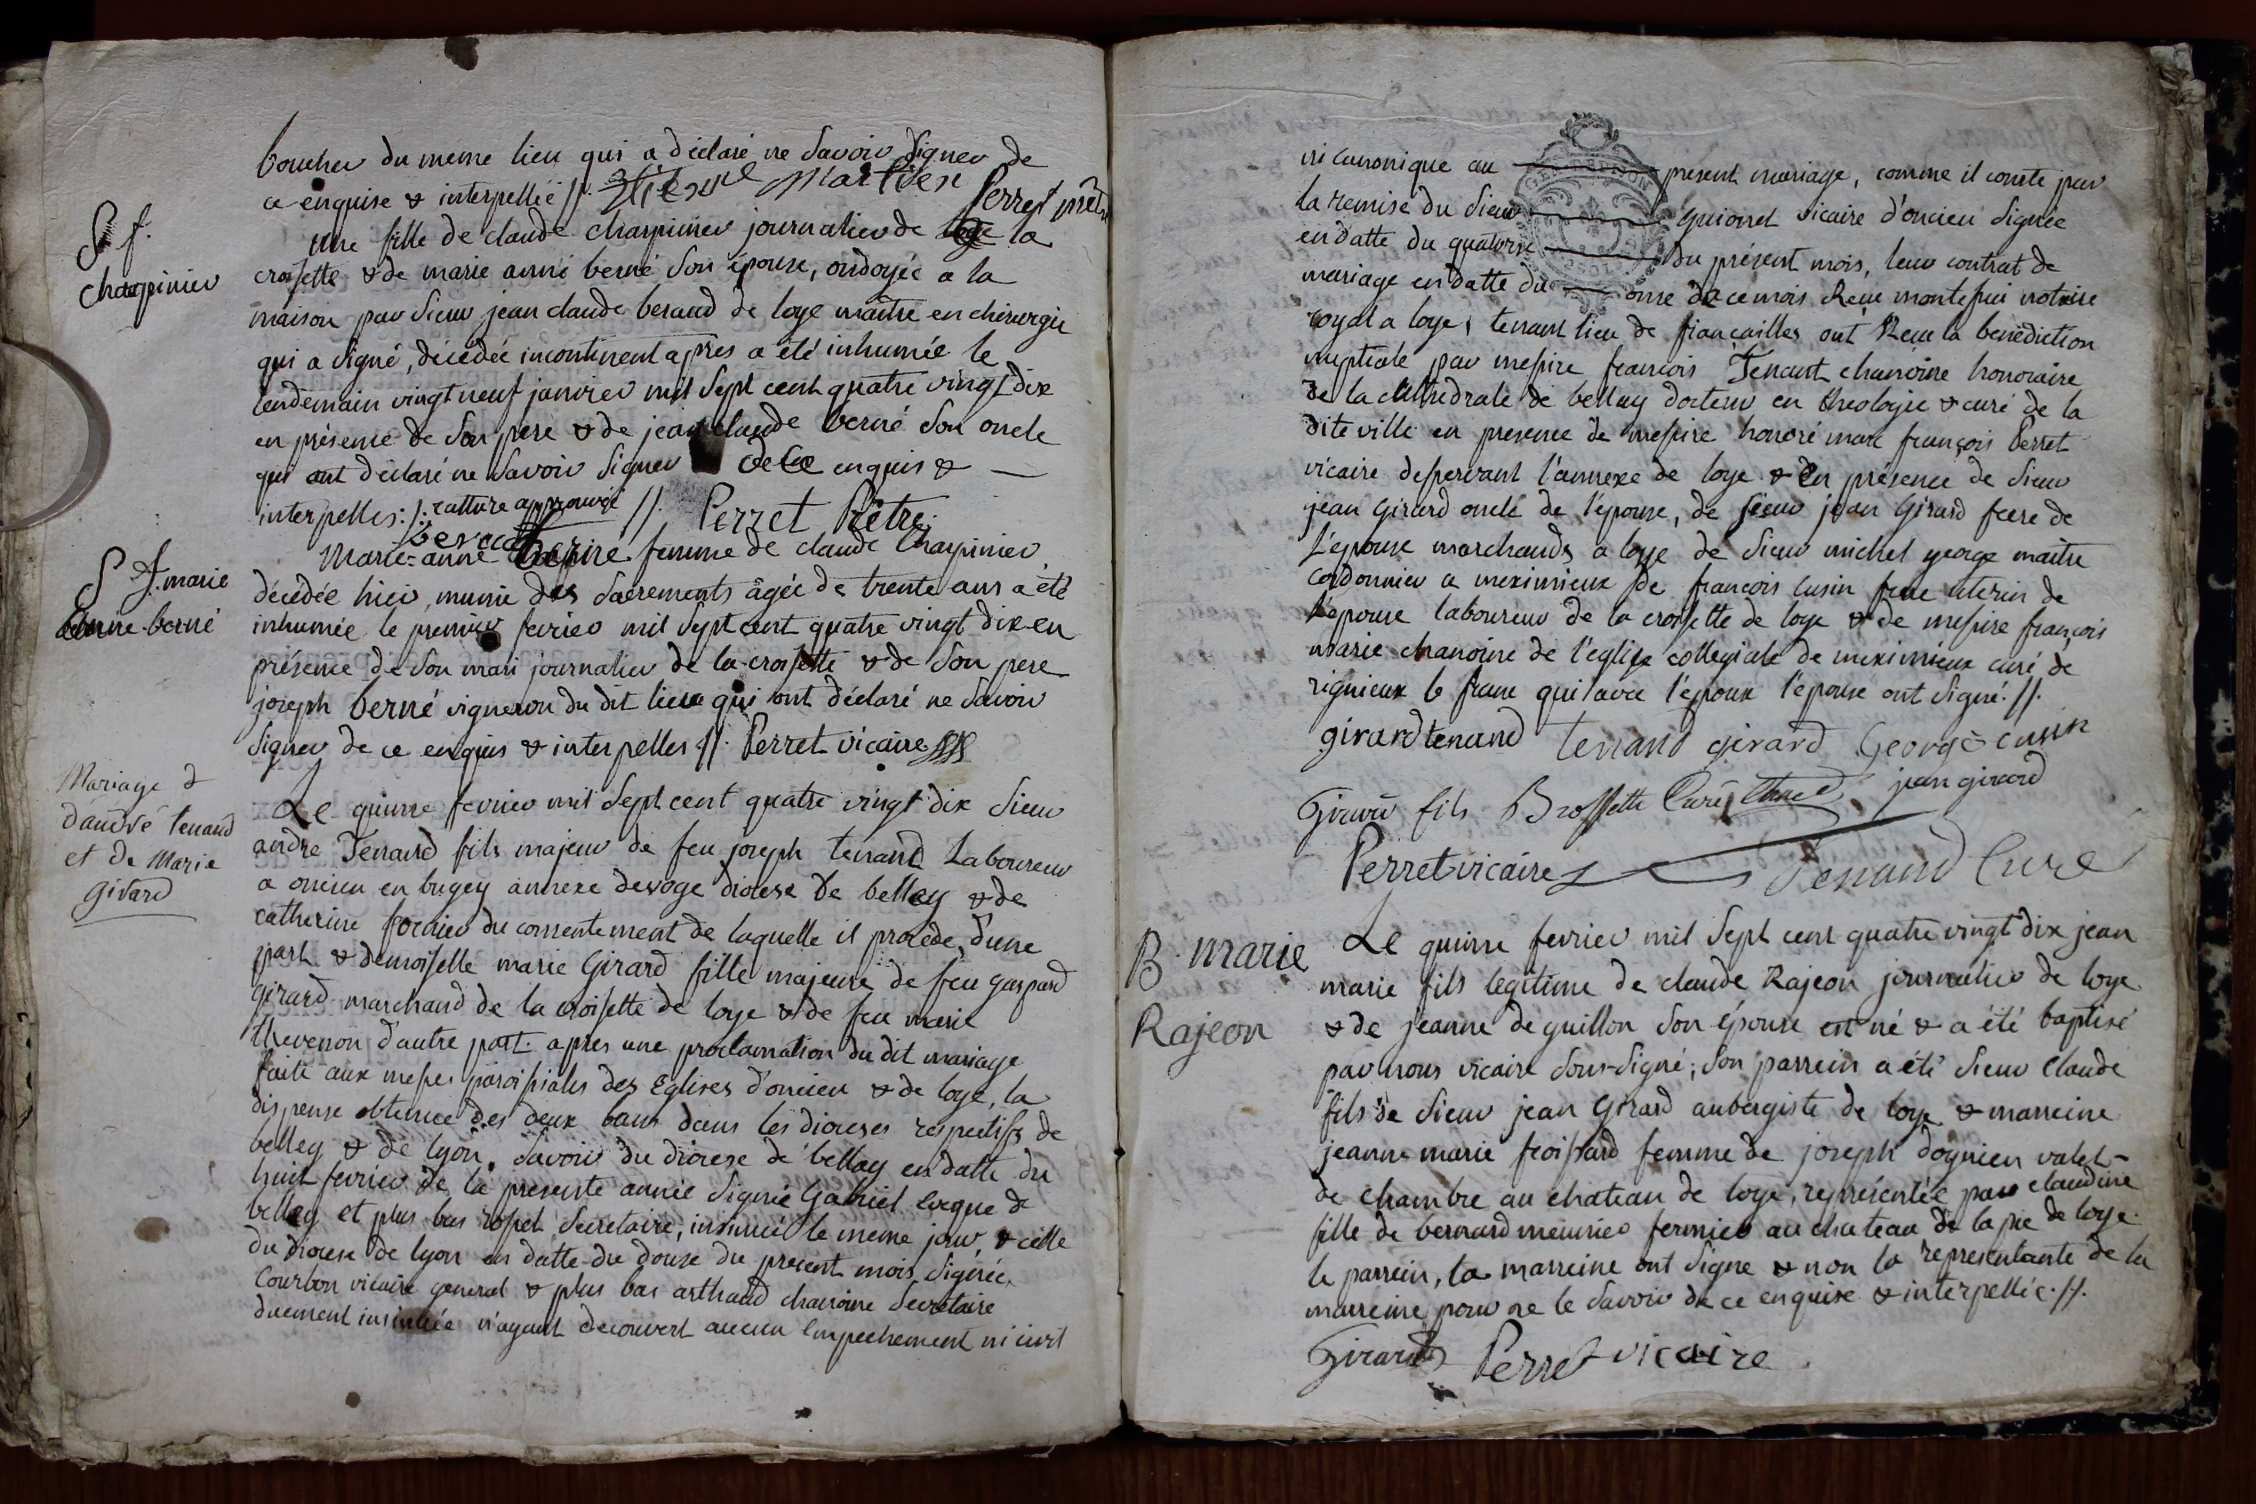 boucher du meme lieu qui a déclaré ne Savoir Signer de
ce enquise & interpellée //. Martien Perret prêtre
S f.
charpinier
une fille de claude charpinier journalier de la
croisette & de marie anne berné Son épouse, ondoyée a la
maison par Sieur jean claude beraud de loye maitre en chirurgie
qui a signé, décédée incontinent apres a été inhumée le
lendemain vingt neuf janvier mil Sept cent quatre vingt dix
en présence de Son pere & de jean claude berné Son oncle
qui ont déclaré ne Savoir Signer de ce enquis &
interpelles :/: ratture approuvée //. Perret Prêtre
beraud
S f. marie
anne berné
Marie-anne berné femme de claude Charpinier
décédée hier, munie des Sacrements âgée de trente ans a été
inhumée le premier fevrier mil Sept cent quatre vingt dix en
présence de Son mari journalier de la croisette & de Son pere
joseph berné vigneron du dit lieu qui ont déclaré ne Savoir
Signer de ce enquis & interpelles //. Perret vicaire
Mariage
d'andré tenand
et de Marie
girard
Le quinze fevrier mil Sept cent quatre vingt dix Sieur
andre Tenand fils majeur de feu joseph tenand Laboureur
a oncieu en bugey annexe devoge diocese de belley & de
catherine forcier du consentement de laquelle il procede, d'une
part & demoiselle marie Girard fille majeure de feu gaspard
girard marchand de la croisette de loye & de feu marie
thevenon d'autre part. apres une proclamation du dit mariage
faite aux messes paroissiales des Eglises d'oncieu & de loye, la
dispense obtenue des deux bans dans les dioceses respectifs de
belley & de lyon. Savoir du diocese de bellay en datte du
huit fevrier de la presente année Signée Gabriel eveque de
belley et plus bas ropet Secretaire, insinuée le meme jour, & celle
du diocese de lyon en datte du douze du present mois, Signée
Courbon vicaire general & plus bas arthaud chanoine Secretaire
duement insinuée n'ayant decouvert aucun empechement ni civil
ni canonique au present mariage, comme il conste par
la remise du Sieur guionet vicaire d'oncieu Signée
en datte du quatorze du présent mois, leur contrat de
mariage en datte du onze de ce mois Reçu montessui notaire
royal a loye, tenant lieu de fiançailles ont Reçu la benediction
nuptiale par messire francois Tenant chanoine honoraire
de la cathedrale de bellay docteur en theologie & curé de la
dite ville en presence de messire honoré marc françois Perret
vicaire desservant l'annexe de loye & en présence de Sieur
jean Girard oncle de l'épouse, de sieur jean Girard frere de
L'epouse marchands a loye de Sieur michel george maitre
Cordonnier a meximieux de francois cusin frere uterin de
L'epouse laboureur de la croisette de loye & de messire françois
marie chanoine de l'eglise collegiale de meximieux curé de
rignieux le franc qui avec l'époux l'epouse ont Signé. //.
girard tenand tenand girard George cusin
Girard fils Brossette Curé jean girard
Perret vicaire Tenand Curé
B. marie
Rajeon
Le quinze fevrier mil Sept cent quatre vingt dix jean
marie fils legitime de claude Rajeon journalier de loye
& de jeanne deguillon Son épouse est né & a été baptisé
par nous vicaire Sous-Signé; Son parrein a été Sieur Claude
fils de Sieur jean Girard aubergiste de loye & marreine
jeanne marie froissard femme de joseph doynien valet
de chambre au chateau de loye, représentée par claudine
fille de bernard meunier fermier au chateau de la pie de loye.
le parrein, la marreine ont Signe & non la representante de la
marreine pour ne le Savoir de ce enquise & interpellée. //.
Girard Perret vicaire